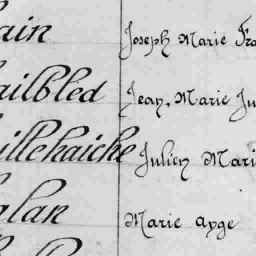 ain Joseph Marie Fra
ailbled Jean, Marie Ju
illehaiche Julien Mari
glan Marie ange